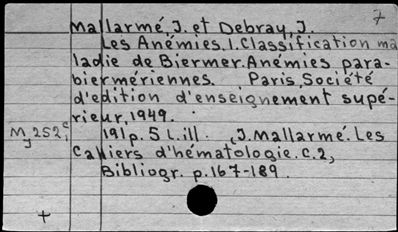 7
Mallarmé, J. et Debray, J.
Les Anémies. I. Classification ma
ladie de Biermer. Anémies para-
biermériennes. Paris, Société
d'edition d'enseignement supé-
rieur, 1949.
My 252, c 191 p. 5 L. ill. (J. Mallarmé. Les
Cahiers d'hématologie. c. 2,
Bibliogr. p. 167-189.
+